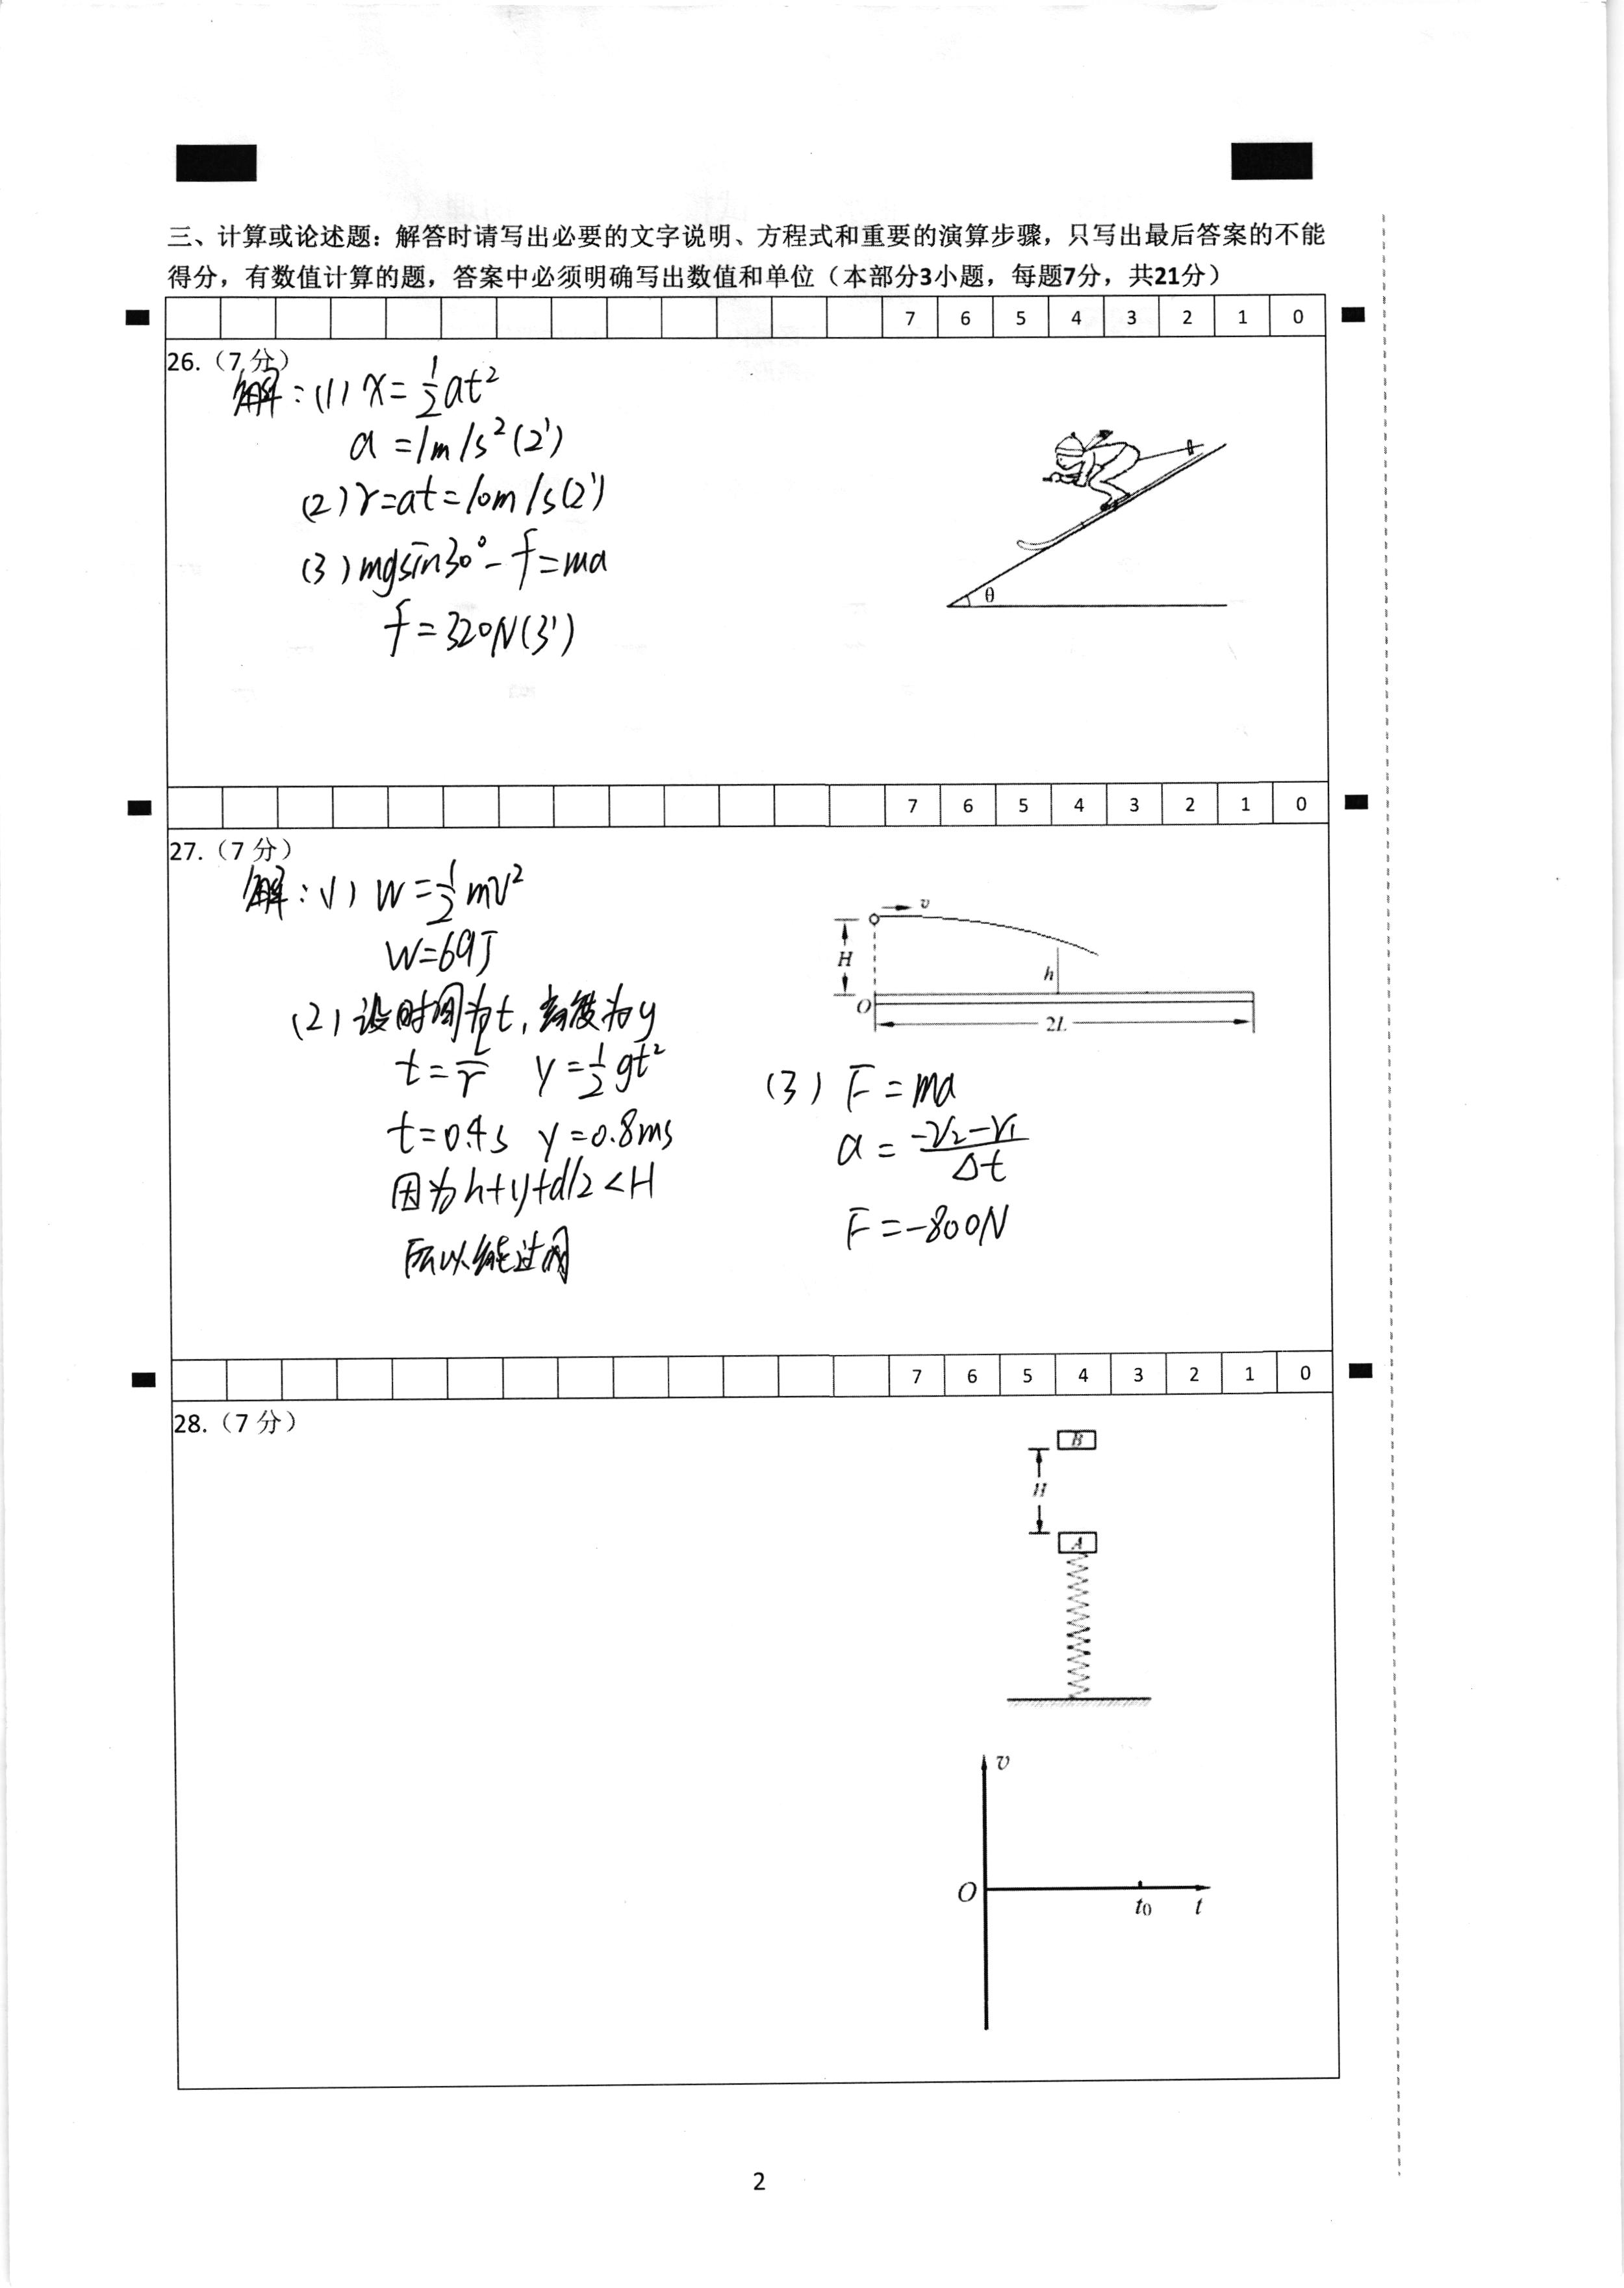 三、计算或论述题：解答时请写出必要的文字说明、方程式和重要的演算步骤，只写出最后答案的不能
得分，有数值计算的题，答案中必须明确写出数值和单位（本部分3小题，每题7分，共21分）
7 6 5 4 3 2 1 0
26.（7分）
解：(1) x=½at²
a=1m/s²(2')
(2) v=at=10m/s(2')
(3) mgsin30°-f=ma
f=320N(3')
θ
7 6 5 4 3 2 1 0
27.（7分）
解：(1) W=½mv²
W=69J
(2) 设时间为t，高度为y
t=L/v y=½gt²
t=0.4s y=0.8ms
因为h+y+d/2<H
所以能过网
v
H
h
O
2L
(3) F=ma
a=(-v₂-v₁)/Δt
F=-800N
7 6 5 4 3 2 1 0
28.（7分）
B
H
A
v
O t₀ t
2